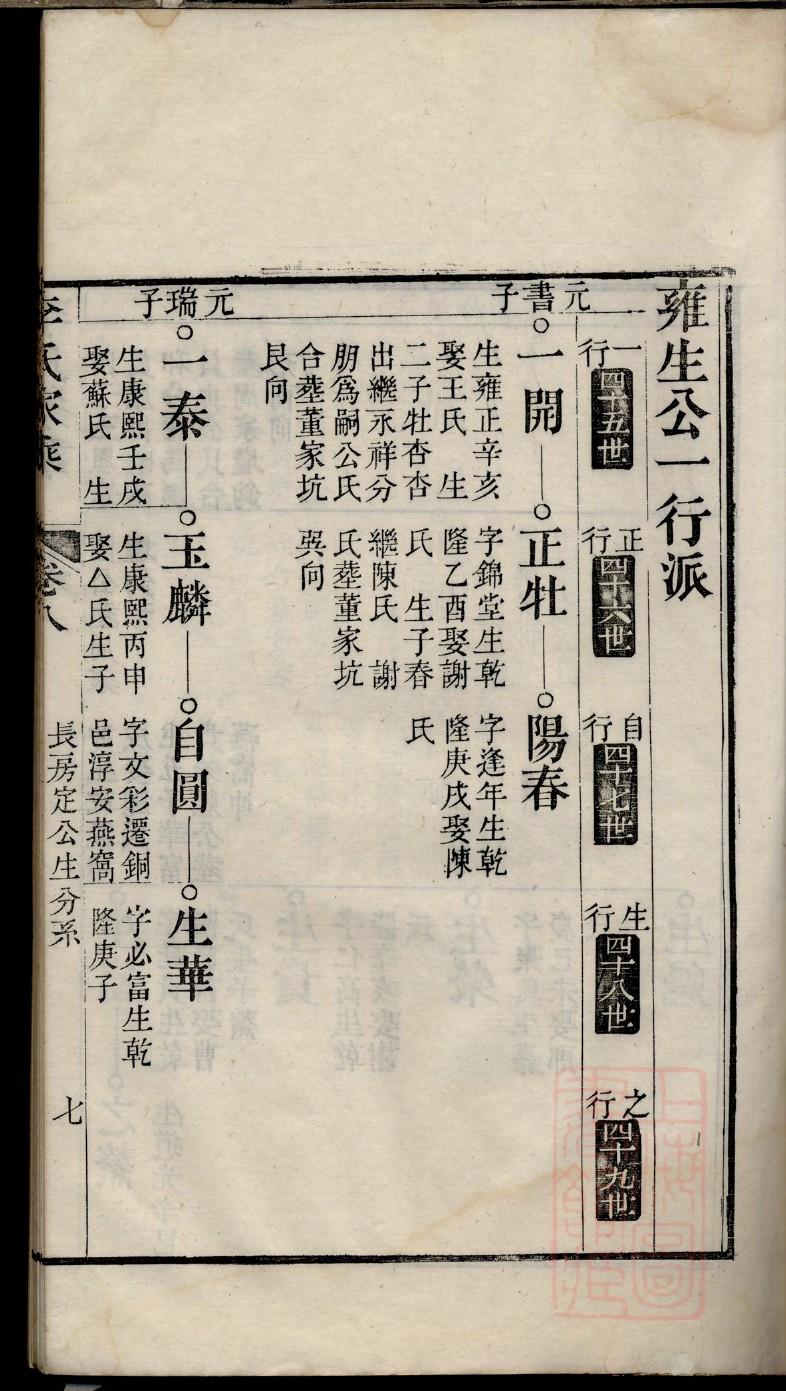 雍生公一行派
一行 四十五世
正行 四十六世
自行 四十七世
生行 四十八世
之行 四十九世
元書子
一開
生雍正辛亥
娶王氏 生
二子牡杏杏
出繼永祥分
朋爲嗣公氏
合塟董家坑
艮向
正牡
字錦堂生乾
隆乙酉娶謝
氏 生子春
繼陳氏 謝
氏塟董家坑
巽向
陽春
字逢年生乾
隆庚戌娶陳
氏
元瑞子
一泰
生康熙壬戌
娶蘇氏 生
玉麟
生康熙丙申
娶△氏生子
自圓
字文彩遷銅
邑淳安燕窩
生華
字必富生乾
隆庚子
李氏家乘
卷八
長房定公生分系
七